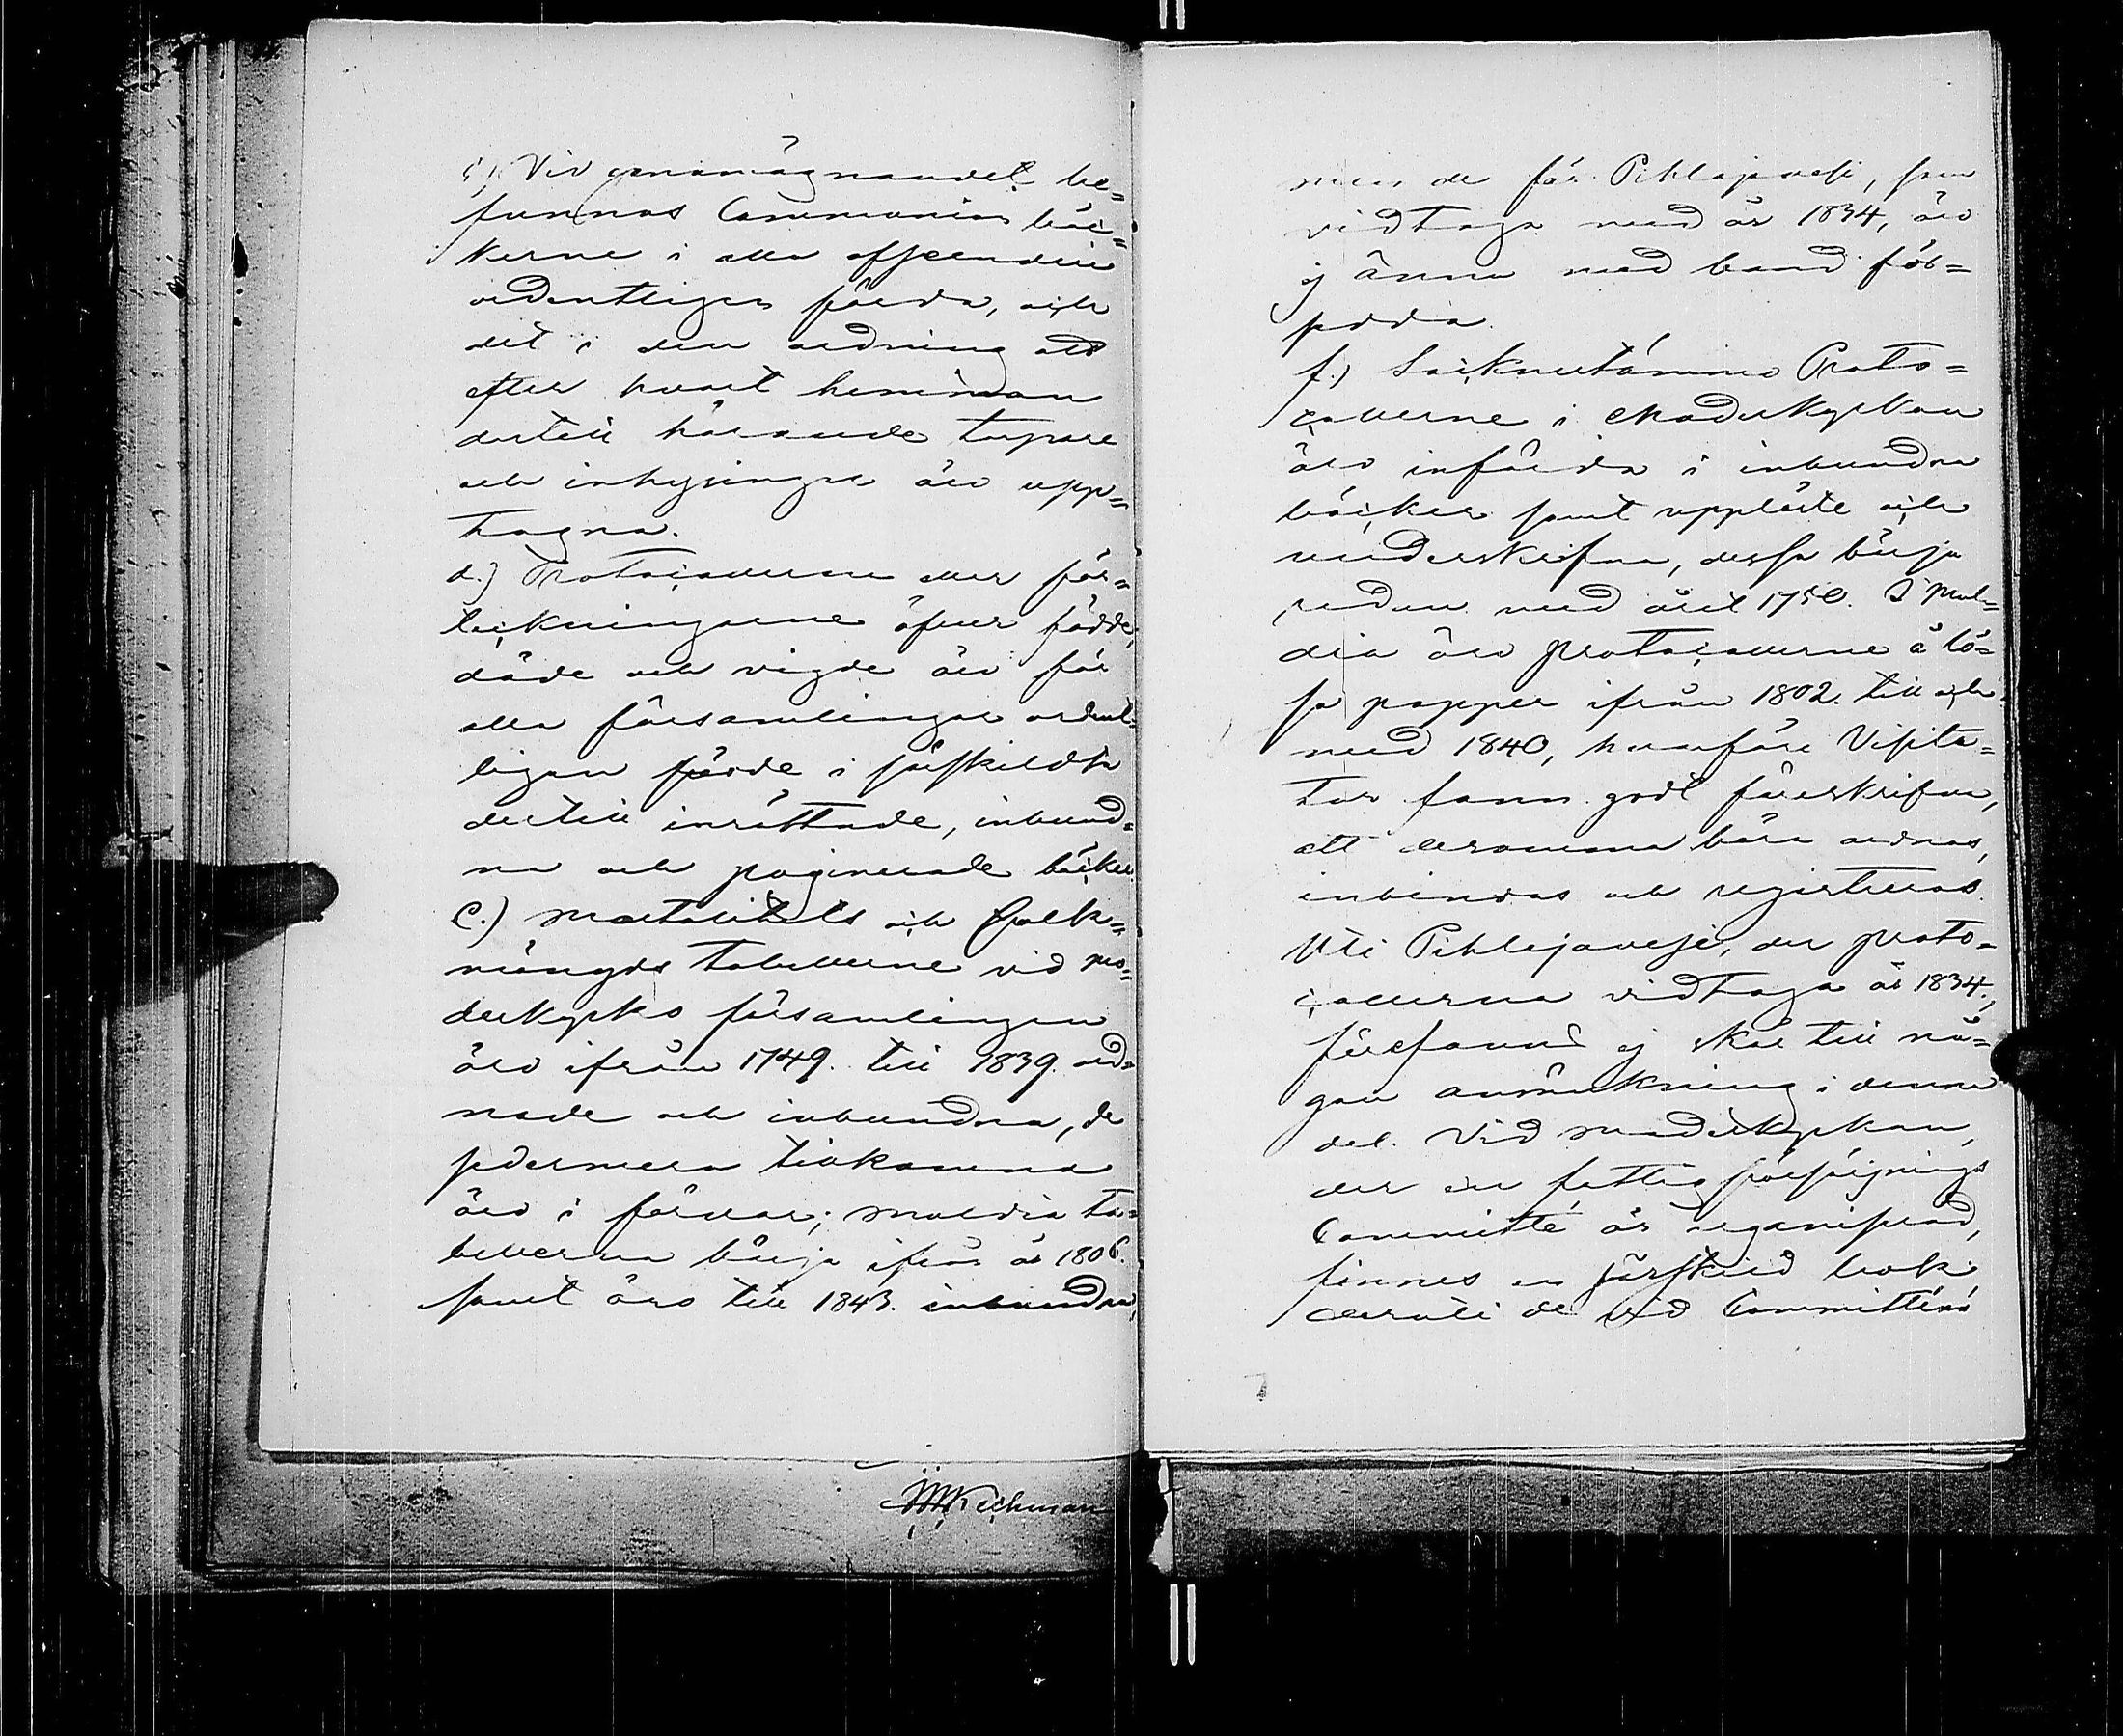 c.) Vid genomögnandet be-
funnos Communion böc-
kerne i alla afseenden
ordentligen förda, och
det i den ordning att
efter hvart hemman
dertill hörande torpare
och inhysingar äro upp-
tagna.
d.) Protocollerne eller för-
teckningarne öfver födde,
döde och vigde äro för
alla församlingar ordent-
ligen förde i särskildta
dertill inrättade, inbund-
na och paginerade böcker.
e.) Mortalitets och Folk-
mängds tabellerne vid mo-
derkyrko församlingen
äro ifrån 1749. till 1839. ord-
nade och inbundna, de
sedermera tillkomna
äro i förvar; Multia ta-
bellerna börja ifrån år 1806.
samt äro till 1843. inbundna,
JWKeckman
men de för Pihlajavesi, som
vidtaga med år 1834, äro
ej ännu med band för-
sedda.
f.) Socknestämmo Proto-
collerne i Moderkyrkan
äro införda i inbundna
böcker samt uppläste och
underskrifna, dessa börja
redan med året 1750. I Mul-
tia äro protocollerne å lö-
sa papper ifrån 1802. till och
med 1840, hvarföre Visita-
tor fann godt föreskrifva,
att desamma böra ordnas,
inbindas och registreras.
Uti Pihlajavesi, der proto-
collerna vidtaga år 1834.,
förefanns ej skäl till nå-
gon anmärkning i denna
del. Vid moderkyrkan,
der en fattigförsörjnings
Committé är organiserad,
finnes en särskild bok
deruti de vid Committéns